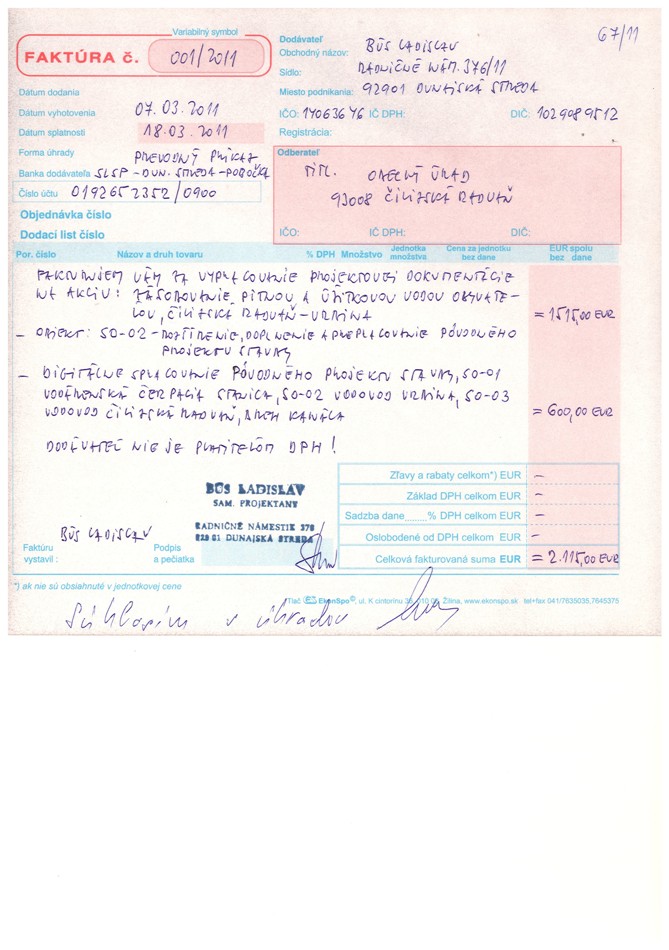 67/11
Variabilný symbol
FAKTÚRA č. 001/2011
Dátum dodania
Dátum vyhotovenia 07.03.2011
Dátum splatnosti 18.03.2011
Forma úhrady PREVODNÝ PRÍKAZ
Banka dodávateľa SLSP-DUN. STREDA-POBOČKA
Číslo účtu 0192652352/0900
Objednávka číslo
Dodací list číslo
Dodávateľ
Obchodný názov: BŰS LADISLAV
Sídlo: RADNIČNÉ NÁM. 376/11
Miesto podnikania: 92901 DUNAJSKÁ STREDA
IČO: 14063646 IČ DPH: DIČ: 1029089512
Registrácia:
Odberateľ
TITL. OBECNÝ ÚRAD
93008 ČILIŽSKÁ RADVAŇ
IČO: IČ DPH: DIČ:
Por. číslo Názov a druh tovaru % DPH Množstvo Jednotka množstva Cena za jednotku bez dane EUR spolu bez dane
FAKTURUJEM VÁM ZA VYPRACOVANIE PROJEKTOVEJ DOKUMENTÁCIE
NA AKCIU: ZÁSOBOVANIE PITNOU A ÚŽITKOVOU VODOU OBYVATE-
ĽOV, ČILIŽSKÁ RADVAŇ-URBINA = 1515,00 EUR
- OBJEKT: SO-02-ROZŠÍRENIE, DOPLNENIE A PREPRACOVANIE PÔVODNÉHO
PROJEKTU STAVBY
- DIGITÁLNE SPRACOVANIE PÔVODNÉHO PROJEKTU STAVBY, SO-01
VODÁRENSKÁ ČERPACIA STANICA, SO-02 VODOVOD URBINA, SO-03
VODOVOD ČILIŽSKÁ RADVAŇ, ARCH KANÁCA = 600,00 EUR
DODÁVATEĽ NIE JE PLATITEĽOM DPH!
Zľavy a rabaty celkom*) EUR -
Základ DPH celkom EUR -
Sadzba dane......% DPH celkom EUR -
Oslobodené od DPH celkom EUR -
Celková fakturovaná suma EUR = 2.115,00 EUR
BŰS LADISLAV
SAM. PROJEKTANT
RADNIČNÉ NÁMESTIE 376
929 01 DUNAJSKÁ STREDA
Faktúru vystavil: BŰS LADISLAV
Podpis a pečiatka
*) ak nie sú obsiahnuté v jednotkovej cene
Tlač EkonSpo, ul. K cintorínu 35, 010 Žilina, www.ekonspo.sk tel+fax 041/7635035,7645375
Súhlasím s úhradou